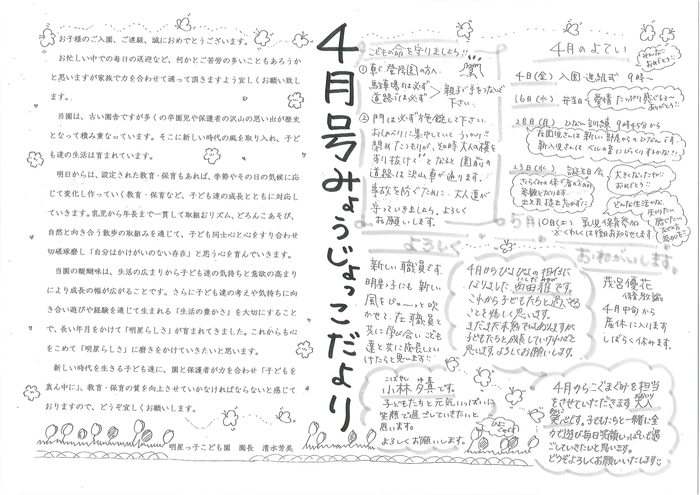 お子様のご入園、ご進級、誠におめでとうございます。
お忙しい中での毎日の送迎など、何かとご苦労の多いこともあろうか
と思いますが家族で力を合わせて通って頂きますよう宜しくお願い致し
ます。
当園は、古い園舎ですが多くの卒園児や保護者の沢山の思い出が歴史
となって積み重なっています。そこに新しい時代の風を取り入れ、子ど
も達の生活は育まれています。
明日からは、設定された教育・保育もあれば、季節やその日の気候に応
じて変化し作っていく教育・保育など、子ども達の成長とともに対応し
ていきます。乳児から年長まで一貫して取組むリズム、どろんこあそび、
自然と向き合う散歩の取組みを通じて、子ども同士心と心をすり合わせ
切磋琢磨し「自分はかけがいのない存在」と思う心を育んでいきます。
当園の醍醐味は、生活の広まりから子ども達の気持ちと意欲の高まり
により成長の幅が広がることです。さらに子ども達の考えや気持ちに向
き合い遊びや経験を通じて生まれる「生活の豊かさ」を大切にすること
で、長い年月をかけて「明星らしさ」が育まれてきました。これからも心
をこめて「明星らしさ」に磨きをかけていきたいと思います。
新しい時代を生きる子ども達に、園と保護者が力を合わせ「子どもを
真ん中に」、教育・保育の質を向上させていかなければならないと感じて
おりますので、どうぞ宜しくお願いします。
明星っ子こども園 園長 清水芳美
4月号みょうじょっこだより
こどもの命を守りましょう!!
駐車場は必ず
道路では必ず
親子で手をつないで
下さい。
②門は必ず施錠して下さい。
おしゃべりに集中しているとうっかり!!
道路は沢山車が通ります。
事故を防ぐために、大人達が
守っていきましょう。よろしく
お願いします。
4月のよてい
4日(金) 入園・進級式 9時〜
16日(水) 弁当日
28日(日)
23日(水) 誕生日会
大きくなったね!!
おめでとう!!
5月10日(土) 乳児保育参加
よろしく おねがいします。
新しい職員です
明星っ子にも新しい
風をぴゅーっと吹
かせて、在職員と
共に学び合い、こども
達と共に成長してい
けたらと思います!
4月からひよこ組の担任に
なりました 西田雅です。
まだまだ未熟ではありますが
子どもたちと成長していけたらと
思います。よろしくお願いします。
茂呂優花
4月中旬から
産休に入ります
しばらく休みます。
小林 夕真です。
子どもたちと元気いっぱいに
笑顔で過ごしていきたいと
思います。
よろしくお願いします。
4月からこぐまぐみを担当
をさせていただきます
笑心です。子どもたちと一緒に全
力で遊び毎日笑顔いっぱいで過
ごしていきたいと思います。
どうぞよろしくお願いいたします